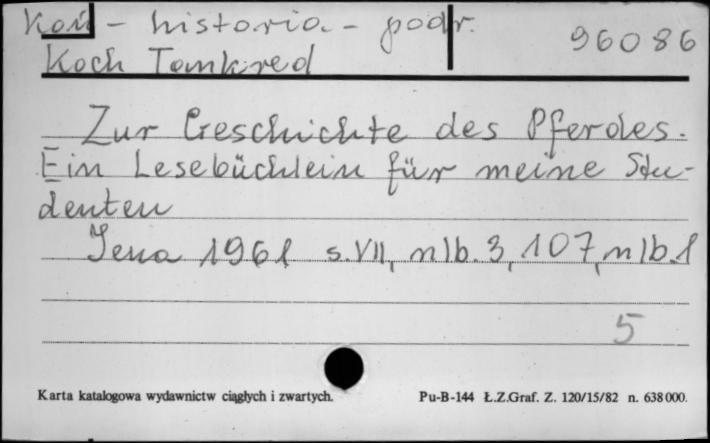 Koń - historia - podr. 96086
Koch Tankred
Zur Geschichte des Pferdes.
Ein Lesebüchlein für meine Stu-
denten
Jena 1961 s. VII, nlb. 3, 107, nlb. 1
5
Karta katalogowa wydawnictw ciągłych i zwartych. Pu-B-144 Ł.Z.Graf. Z. 120/15/82 n. 638000.